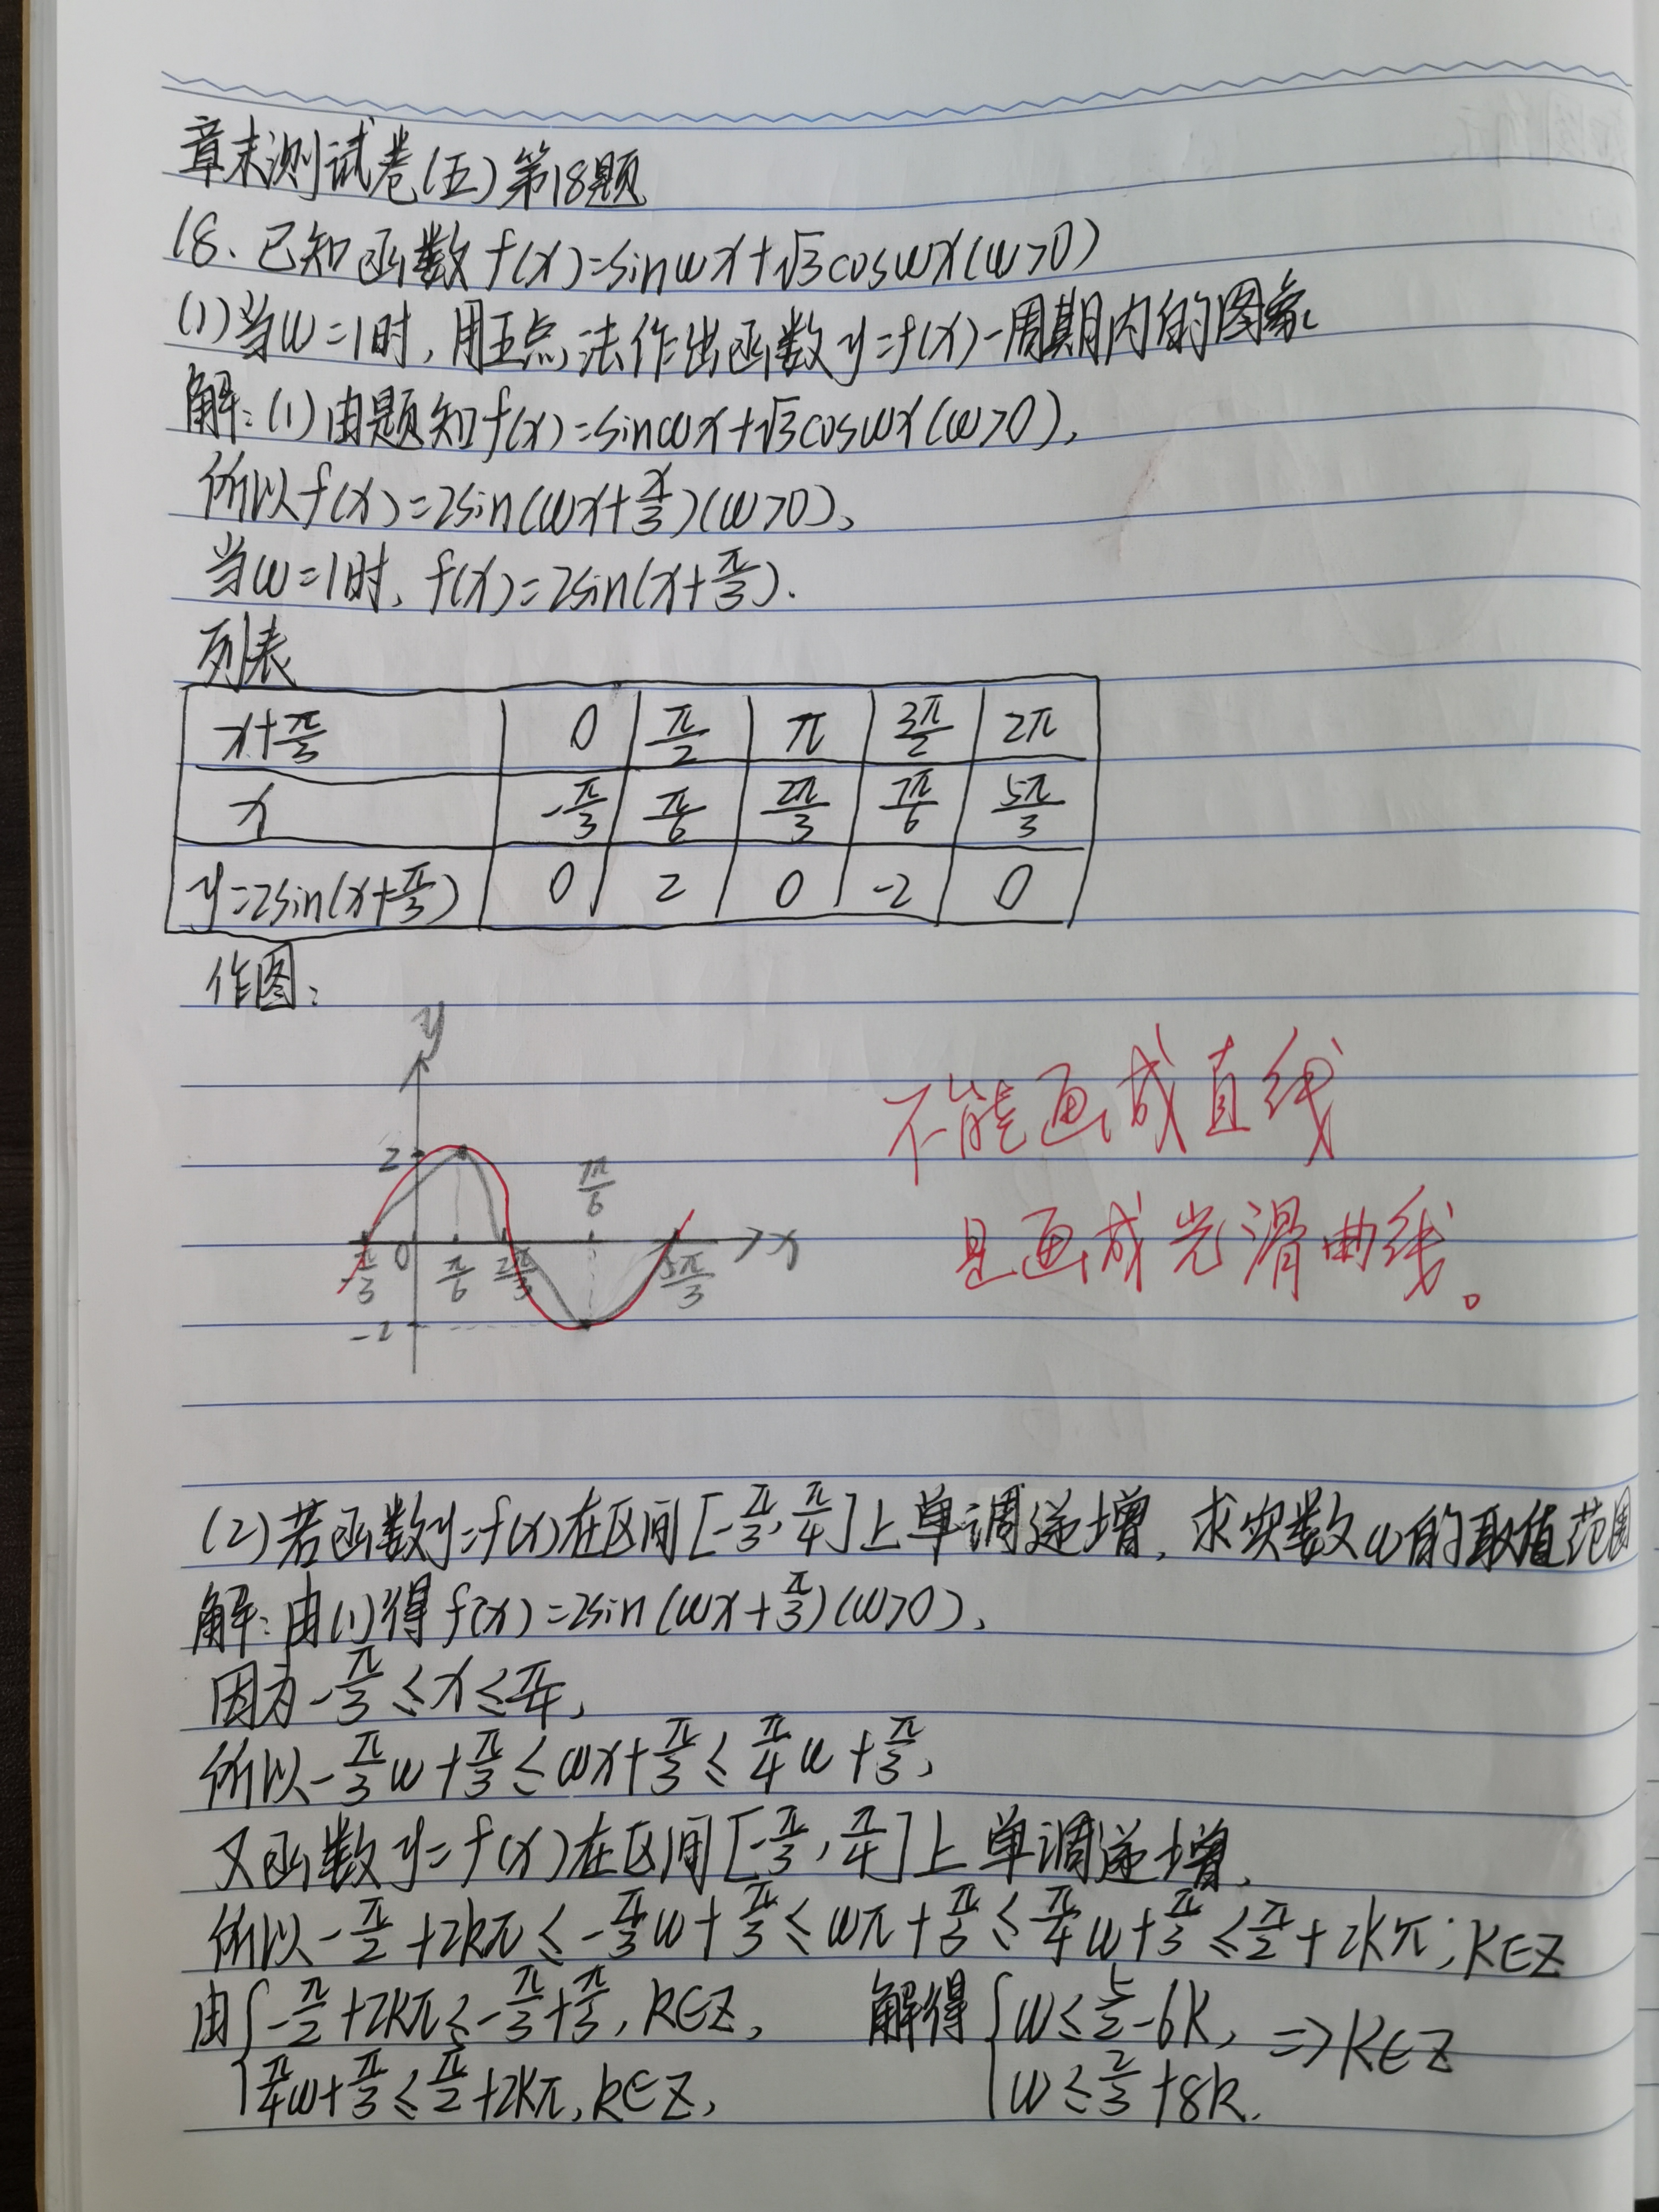 章末测试卷(五)第18题
18、已知函数f(x)=sinωx+√3cosωx(ω>0)
(1)当ω=1时,用五点法作出函数y=f(x)一周期内的图象。
解:(1)由题知f(x)=sinωx+√3cosωx(ω>0),
所以f(x)=2sin(ωx+π/3)(ω>0),
当ω=1时,f(x)=2sin(x+π/3).
列表
x+π/3 0 π/2 π 3π/2 2π
x -π/3 π/6 2π/3 7π/6 5π/3
y=2sin(x+π/3) 0 2 0 -2 0
作图:
y
2
7π/6
-π/3 0 π/6 2π/3 5π/3 x
-2
不能画成直线
是画成光滑曲线。
(2)若函数y=f(x)在区间[-π/3,π/4]上单调递增,求实数ω的取值范围
解:由(1)得f(x)=2sin(ωx+π/3)(ω>0),
因为-π/3≤x≤π/4,
所以-π/3ω+π/3≤ωx+π/3≤π/4ω+π/3,
又函数y=f(x)在区间[-π/3,π/4]上单调递增,
所以-π/2+2kπ≤-π/3ω+π/3≤ωπ+π/3≤π/4ω+π/3≤π/2+2kπ;k∈Z
由{-π/2+2kπ≤-π/3+π/3,k∈Z, 解得{ω≤5/2-6k, ⇒k∈Z
π/4ω+π/3≤π/2+2kπ,k∈Z, ω≤2/3+8k.